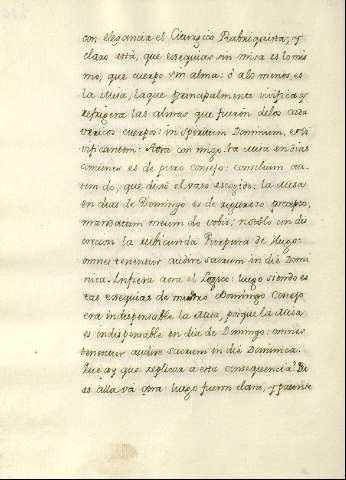 con elegancia el Cirurgico Rubriquista, y
claro está, que exequias sin misa es lo mis
mo, que cuerpo sin alma: ó alo menos, es
la Misa, la que principalmente vivifica, y
refrigera las almas que fueron delos
cuerpos: in spiritum Dominum,
vificantem: Aora con migo: la Misa en dias
comunes es de puro consejo: consilium au
tem do, que dixo el vaso escogido: la Misa
en dias de Domingo es de riguroso precepto,
mandatum meum do vobis: notólo con dis
crecion la rubicunda Purpura de Hugo:
omnes tenentur audire sacrum in die Domi
nica. Infiera aora el Logico: luego siendo es
tas exequias de nuestro Domingo Conejo
era indispensable la Misa, porque la Misa
es indispensable en dia de Domingo: omnes
tenentur audire sacrum in die Dominica.
Que ay que replicar a esta consequencia? Pu
es alla vá otra: luego fueron claras, y patente